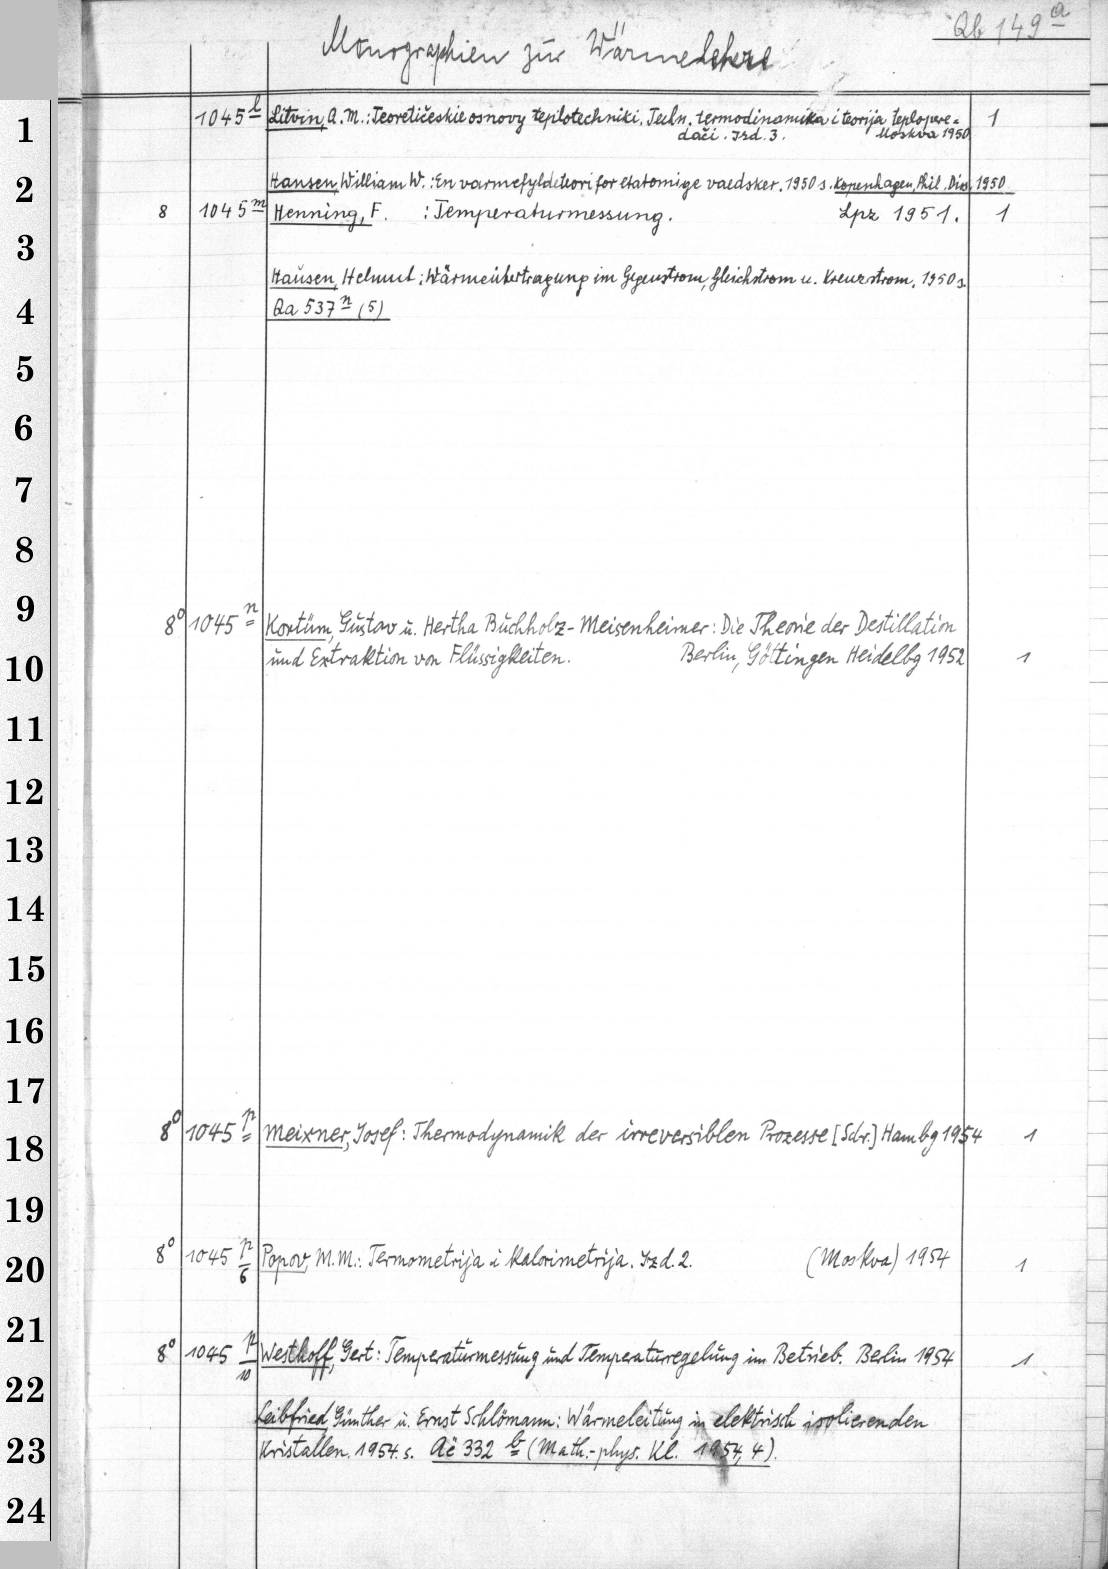 Qb 149 a
Monographien zur Wärmelehre
1045 l Litvin, A. M.: Teoretičeskie osnovy teplotechniki. Techn. termodinamika i teorija teplopere= 1
dači. Izd. 3. Moskva 1950
Hansen, William W.: En varmefyldeteori for etatomige vaedsker. 1950 s. Kopenhagen, Phil. Diss. 1950
8 1045 m Henning, F. : Temperaturmessung. Lpz 1951. 1
Hausen, Helmut: Wärmeübertragung im Gegenstrom, Gleichstrom u. Kreuzstrom. 1950 s.
Qa 537 n (5)
8° 1045 n Kortüm, Gustav u. Hertha Buchholz-Meisenheimer: Die Theorie der Destillation
und Extraktion von Flüssigkeiten. Berlin, Göttingen Heidelbg 1952 1
8° 1045 p Meixner, Josef: Thermodynamik der irreversiblen Prozesse [Sdr.] Hambg 1954 1
8° 1045 p/6 Popov, M.M.: Termometrija i kalorimetrija. Izd. 2. (Moskva) 1954 1
8° 1045 p/10 Westhoff, Gert: Temperaturmessung und Temperaturregelung im Betrieb. Berlin 1954 1
Leibfried, Günther u. Ernst Schlömann: Wärmeleitung in elektrisch isolierenden
Kristallen. 1954. s. Aë 332 b (Math.-phys. Kl. 1954, 4).
1
2
3
4
5
6
7
8
9
10
11
12
13
14
15
16
17
18
19
20
21
22
23
24